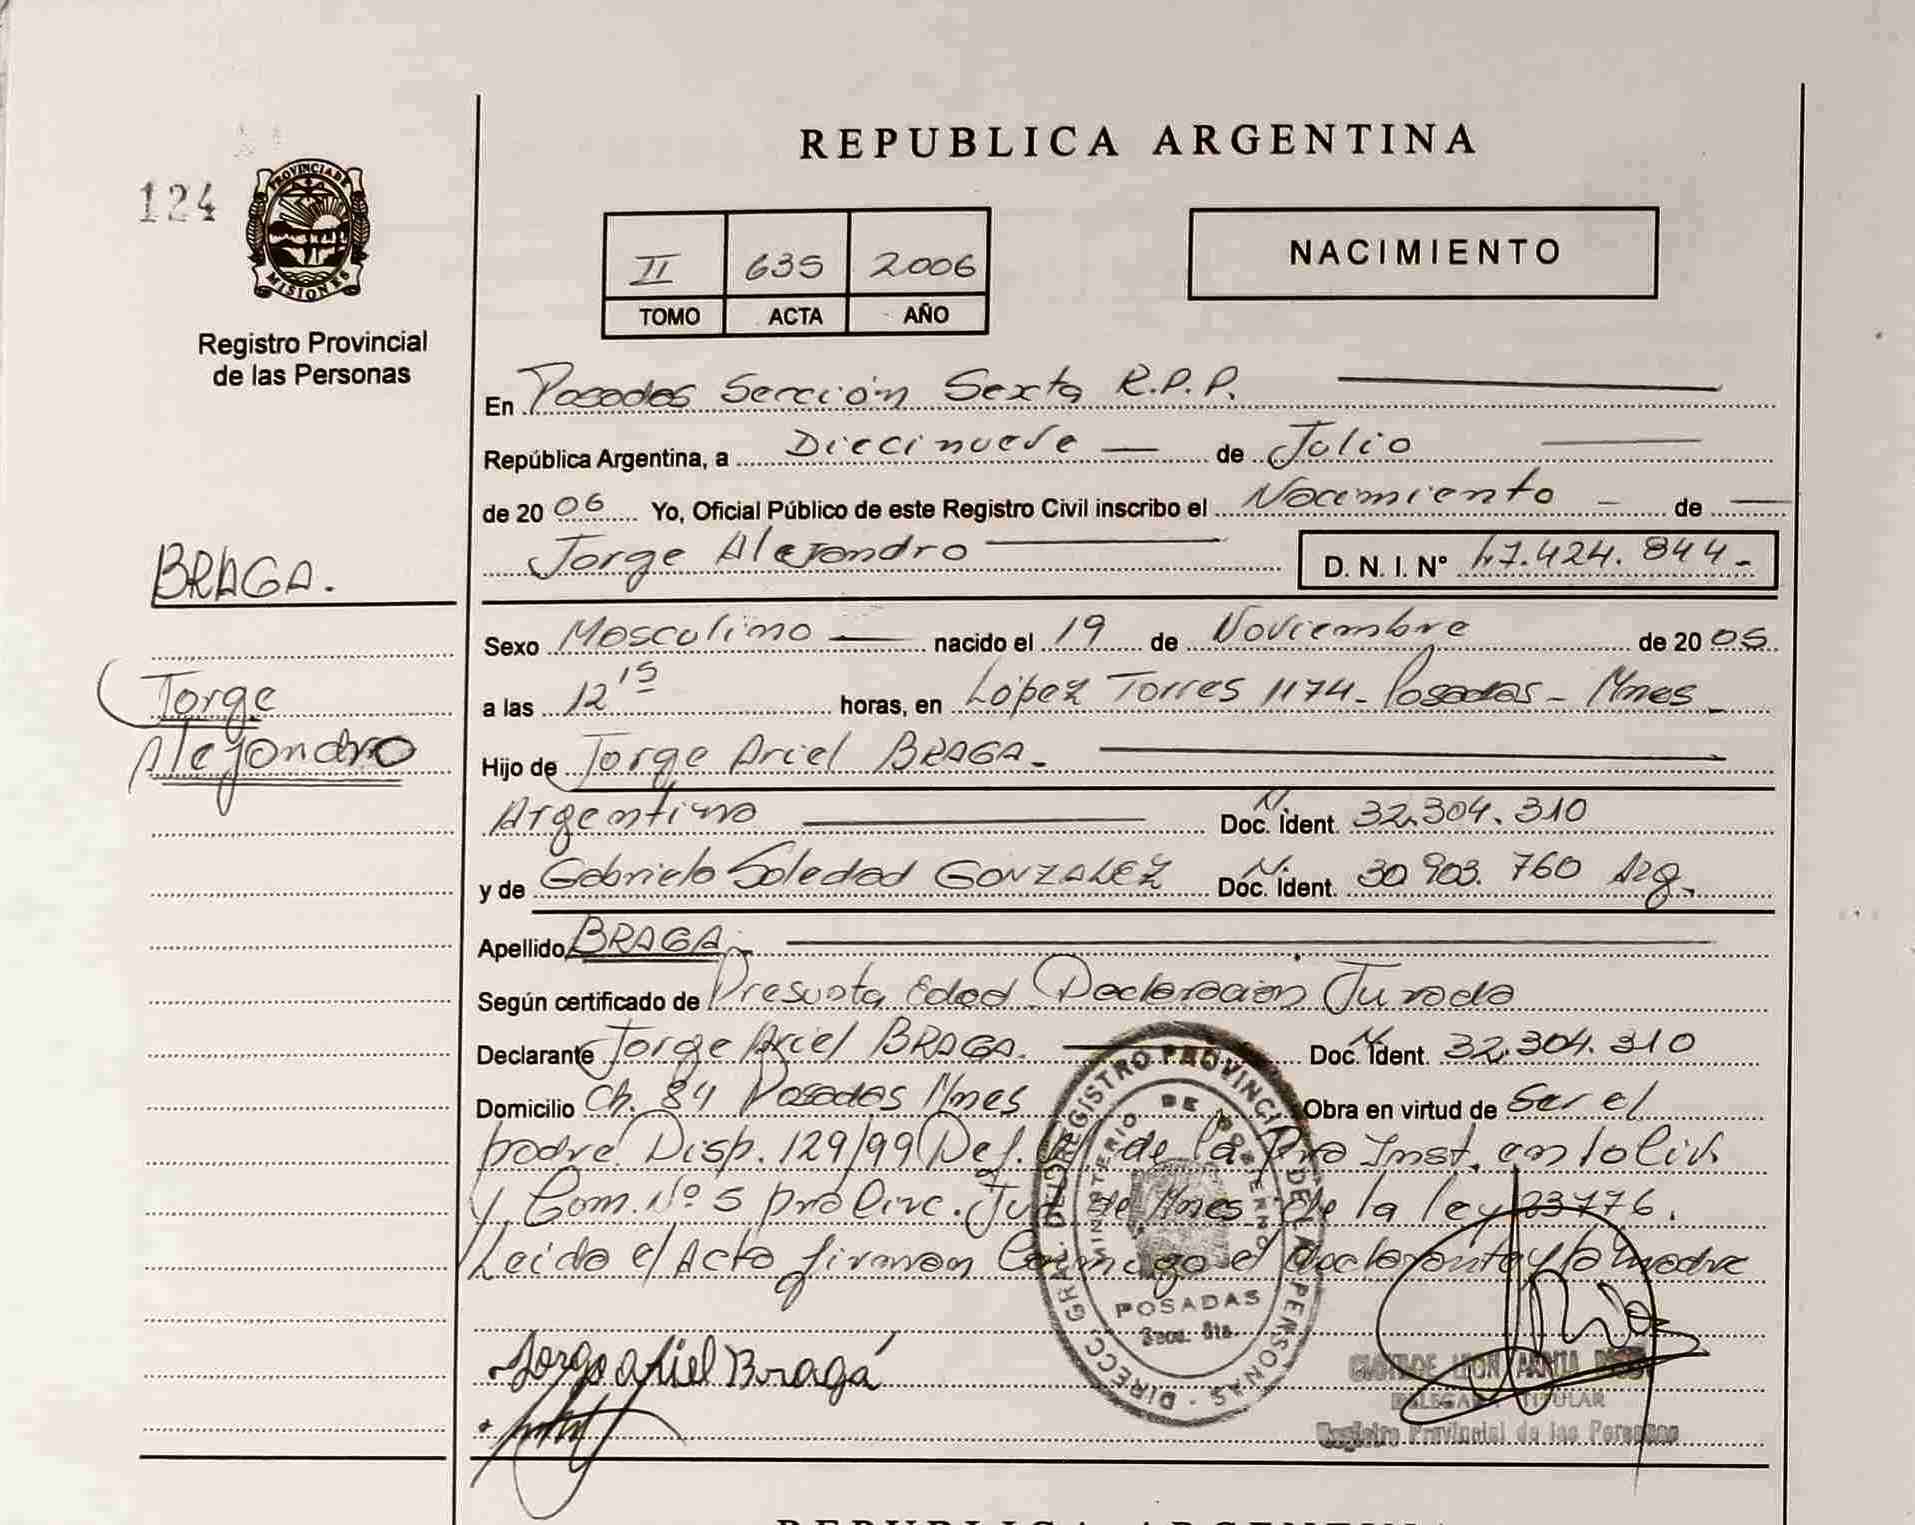 REPUBLICA ARGENTINA
124
PROVINCIA DE
MISIONES
Registro Provincial
de las Personas
II 635 2006
TOMO ACTA AÑO
NACIMIENTO
En Posadas Sección Sexta R.P.P.
República Argentina, a Diecinueve de Julio
de 2006 Yo, Oficial Público de este Registro Civil inscribo el Nacimiento de
Jorge Alejandro D. N. I. N° 47.424.844-
BRAGA.
Sexo Masculino nacido el 19 de Noviembre de 2005
Jorge
Alejandro
a las 12 15 horas, en López Torres 1174- Posadas- Mnes
Hijo de Jorge Ariel BRAGA-
Argentino Doc. Ident. N. 32.304.310
y de Gabriela Soledad GONZALEZ Doc. Ident. N. 30 903.760 Arg.
Apellido BRAGA-
Según certificado de Presunta Edad Declaracion Jurada
Declarante Jorge Ariel BRAGA. Doc. Ident. N. 32.304.310
Domicilio Ch. 84 Posadas Mnes Obra en virtud de Ser el
padre Disp. 129/99 Def. de la Inst. en lo Civ.
y Com. Nº 5 Circ. Jud. de Mnes de la ley 23776.
Leida el Acta firman Conmigo el declarante y la madre
DIRECC. GRAL. DEL REGISTRO PROVINCIAL DE LAS PERSONAS
MINISTERIO DE GOBIERNO
POSADAS
Secc. 6ta.
Jorge ariel Braga
DELEGADA TITULAR
Registro Provincial de las Personas
REPUBLICA ARGENTINA